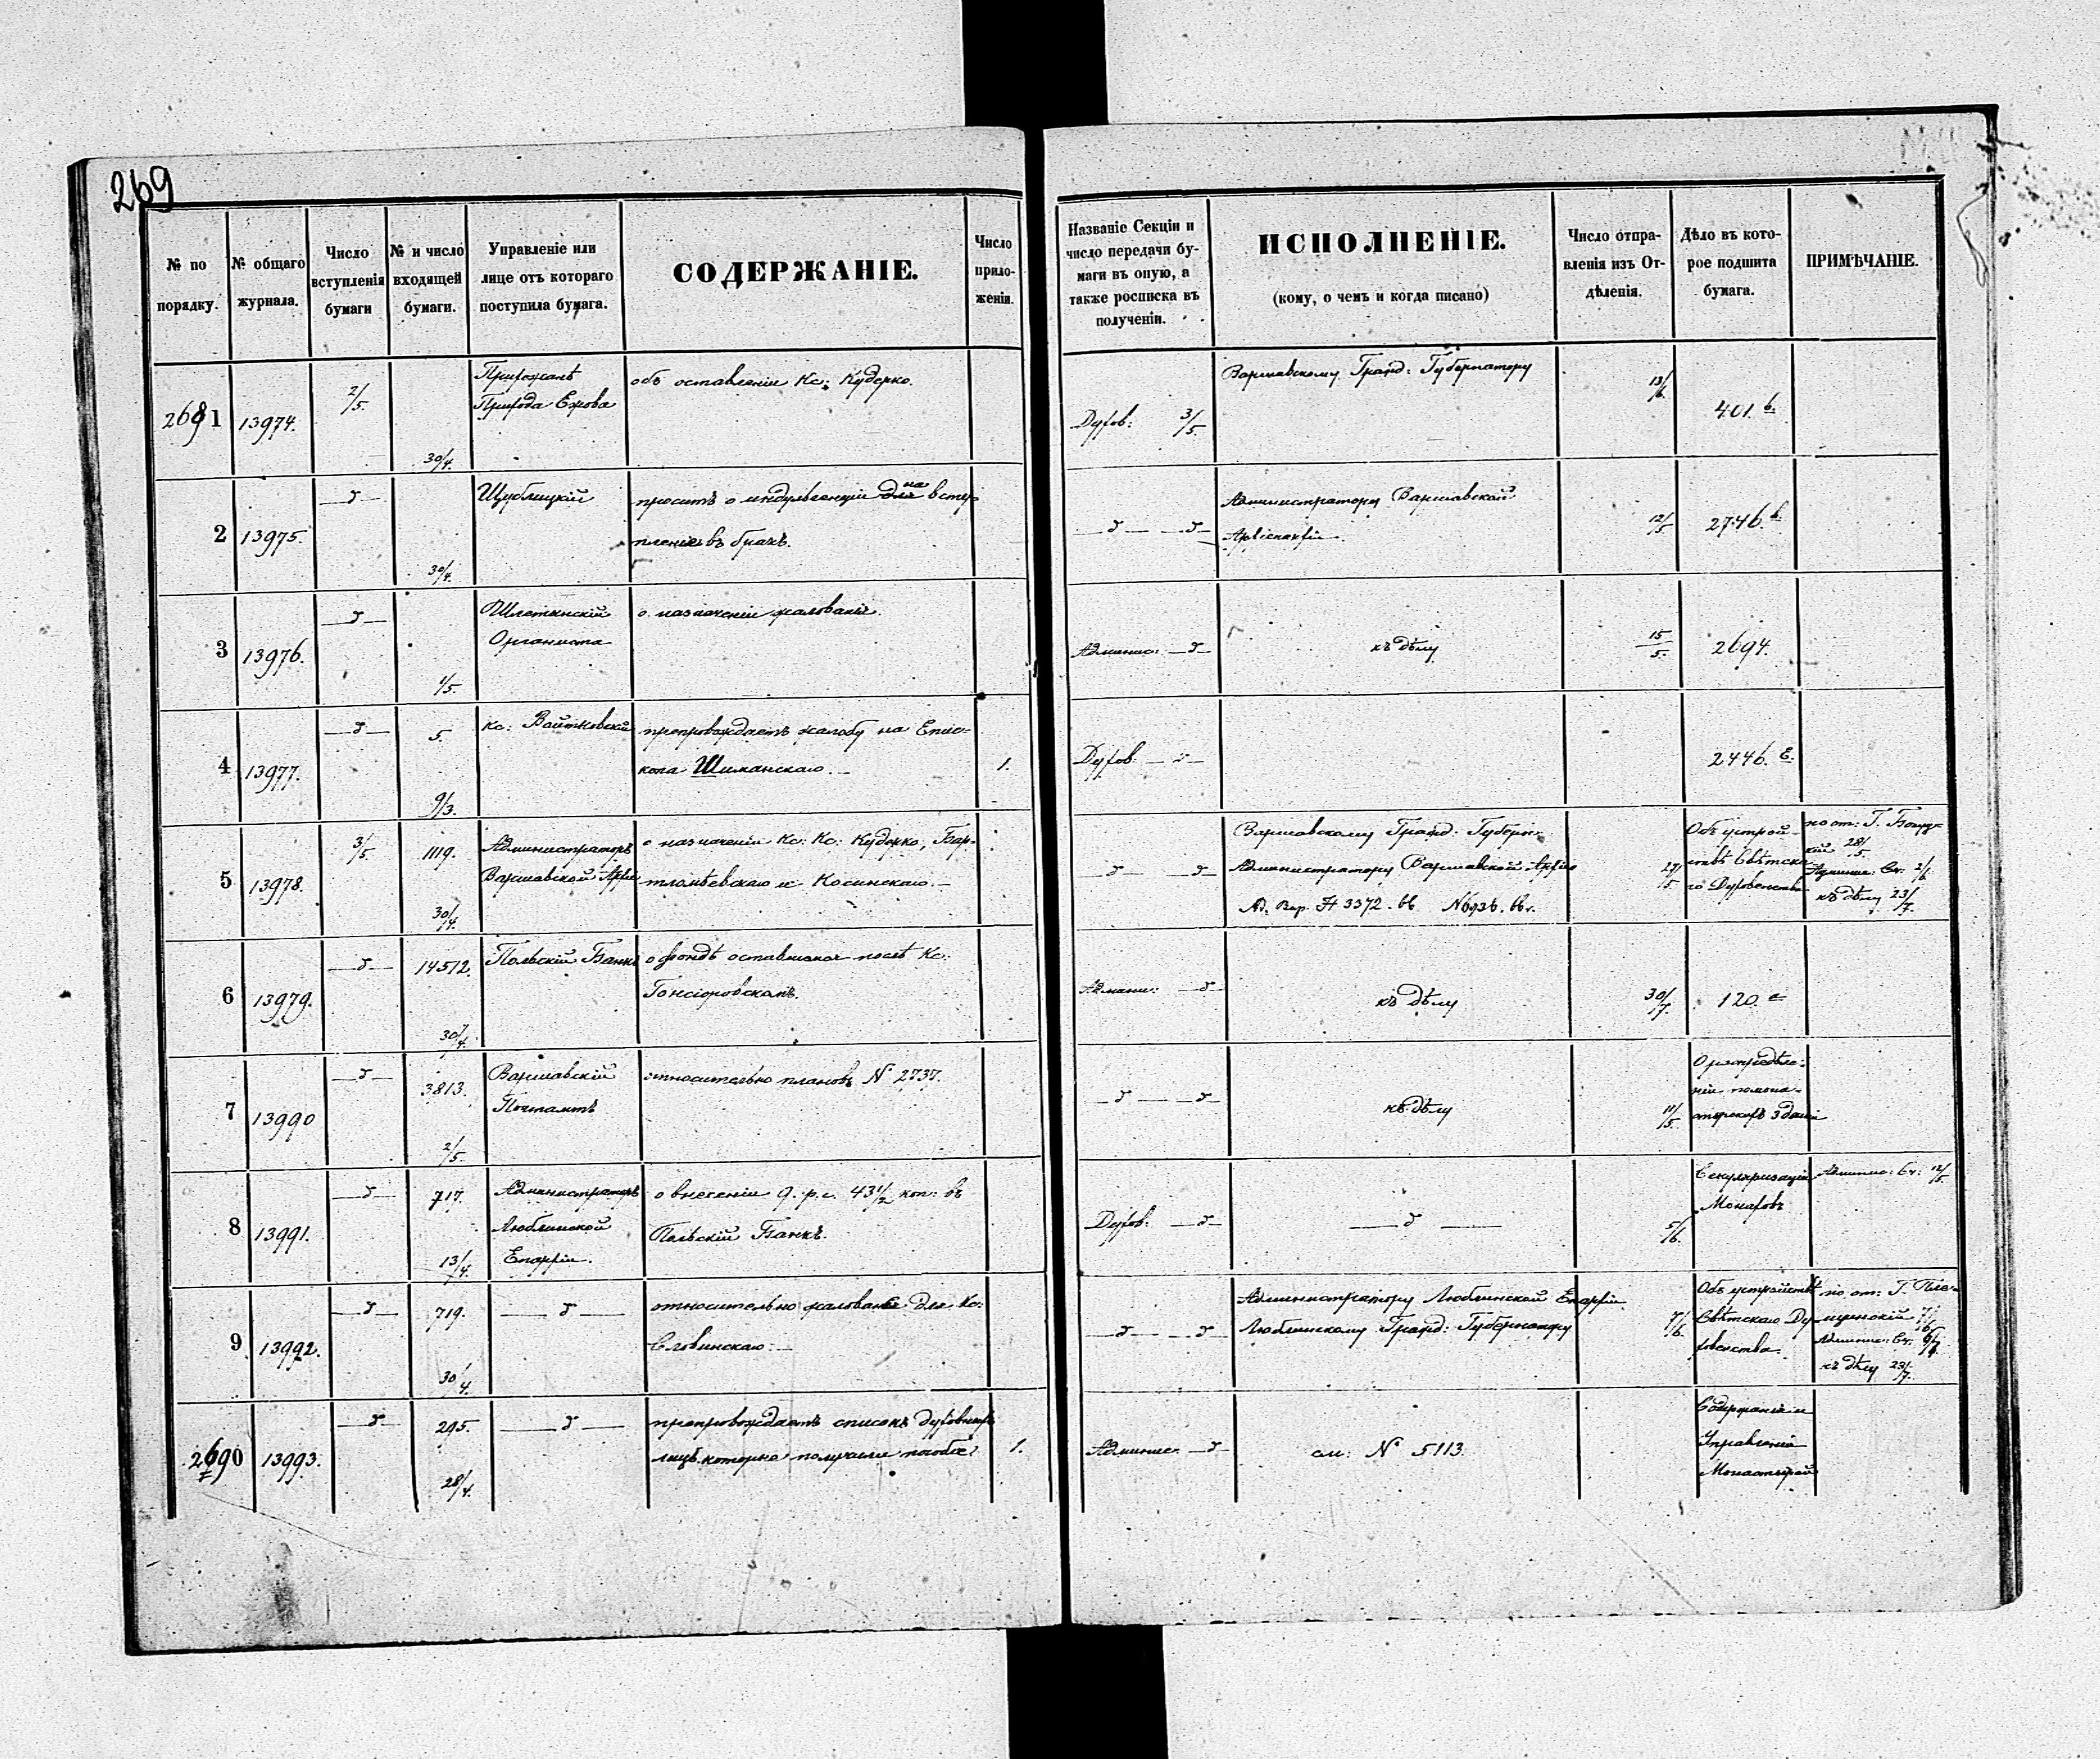 269
№ по порядку.
№ общаго журнала.
Число вступленія бумаги
№ и число входящей бумаги.
Управленіе или лице отъ котораго поступила бумага.
СОДЕРЖАНІЕ.
Число приложеніи.
Названіе Секціи и число передачи бумаги въ оную, а также росписка въ полученіи.
ИСПОЛНЕНІЕ.
(кому, о чемъ и когда писано)
Число отправленія изъ Отдѣленія.
Дѣло въ которое подшита бумага.
ПРИМѢЧАНІЕ.
2681 13974. 2/5. 30/4.
Прихожанъ
Прихода Ежова
объ оставленіи Кс: Кудерко.
Духов: 3/5.
Варшавскому Гражд: Губернатору
13/6.
401. b.
2 13975. —д— 30/4.
Щублицкій
проситъ о индульгенціи для на вступ-
пленіе въ бракъ.
—д— —д—
Администратору Варшавской
Архіепархіи.
12/5
2746. b.
3 13976. —д— 1/5.
Органиста
о назначеніи жалованія.
Админис: —д—
къ дѣлу
15/5.
2694.
4 13977. —д— 5. 9/3.
Кс: Войтковскій
препровождаетъ жалобу на Епис-
копа Шиманскаго.—
1.
Духов: —д—
2446. E.
5 13978. 3/5. 1119. 30/4.
Администраторъ
Варшавской Архіе
о назначеніи Кс: Кс: Кудерко, Бар-
тломѣевскаго и Косинскаго.—
—д— —д—
Варшавскому Гражд: Губерн:
Администратору Варшавской Архіе
Ад. Вар. № 3372. вв № 6936. вв.
27/5
Объ устрой-
ствѣ Свѣтска-
го Духовенства
28/5.
Админис: Сч: 2/6.
къ дѣлу 23/7.
6 13979. —д— 14512. 30/4.
Польскій Банкъ
о фондѣ оставшемся послѣ Кс:
Гонсіоровскомъ.
Админи: —д—
къ дѣлу
30/7.
120. e
7 13990 —д— 3813. 2/5.
Варшавскій
Почтамтъ
относительно плановъ № 2737.
—д— —д—
къ дѣлу
11/5.
О распредѣле-
ніи помона-
стырскихъ зданій
8 13991. —д— 717. 13/4.
Администраторъ
Люблинской
Епархіи.
о внесеніи 9. р. с. 43½ коп: въ
Польскій Банкъ.
Духов: —д—
—д—
5/6.
Секуляризація
Монаховъ
Админис: Сч: 12/5.
9 13992. —д— 719. 30/4.
—д—
относительно жалованія для Кс:
Словинскаго:—
—д— —д—
Администратору Люблинской Епархіи.
Люблинскому Гражд: Губернатору
7/6.
Объ устройствѣ
Свѣтскаго Ду-
ховенства
по от: Г.
Админис: Сч:
къ дѣлу 23/7.
2690 13993. —д— 295. 28/4.
—д—
препровождаетъ списокъ духовныхъ
лицъ которые получили пособіе
1.
Админис: —д—
см: № 5113.
Содержаніе и
Управленіе
Монастырей